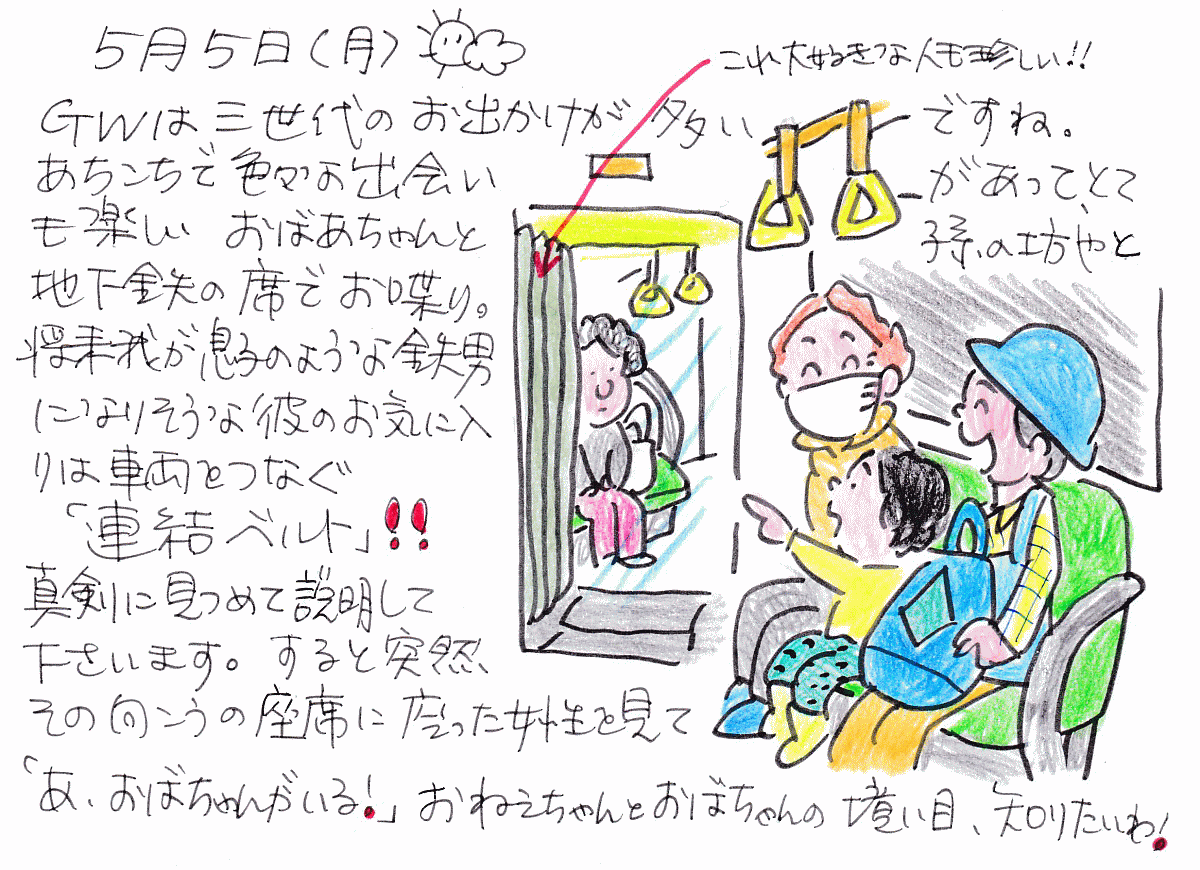 5月5日(月)
これ大好きな人も珍しい!!
GWは三世代のお出かけが多いですね。
あちこちで色々な出会いがあって、とて
も楽しい おばあちゃんと孫の坊やと
地下鉄の席でお喋り。
将来我が息子のような鉄男
になりそうな彼のお気に入
りは車両をつなぐ
「連結ベルト」!!
真剣に見つめて説明して
下さいます。すると突然、
その向こうの座席に座った女性を見て
「あ、おばちゃんがいる!」おねえちゃんとおばちゃんの境い目、知りたいわ!